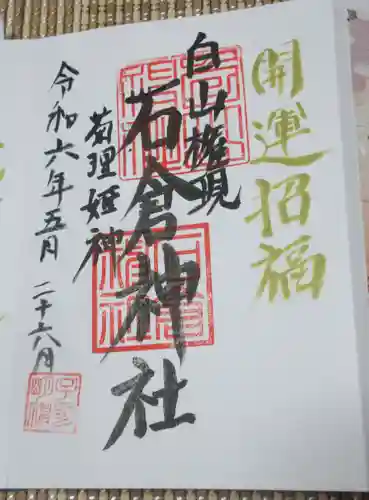 開運招福
白山権現
石倉神社
菊理姫神
令和六年五月二十六月